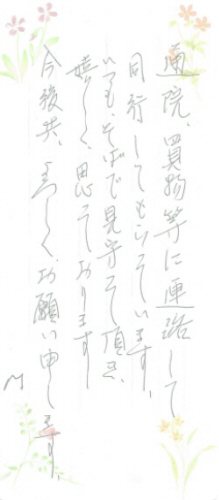 通院、買物等に連絡して
同行してもらっています。
いつも、そばで見守って頂き、
嬉しく、思っております。
今後共、よろしく、お願い申します。